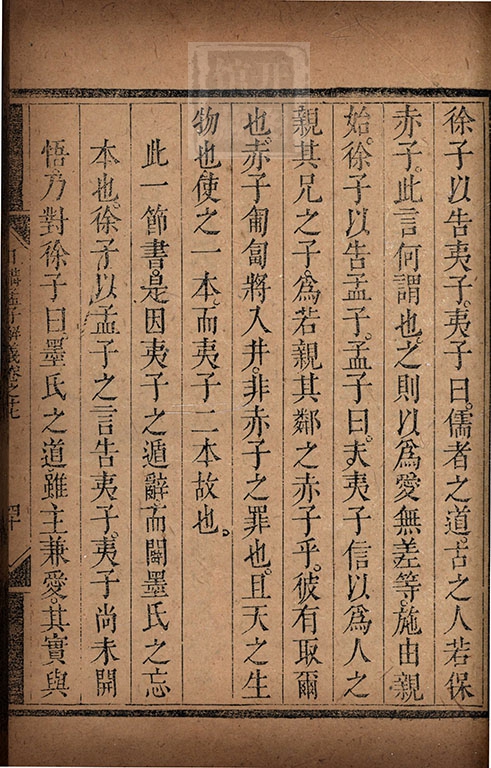 徐子以告夷子。夷子曰。儒者之道。古之人若保
赤子。此言何謂也。之則以為愛無差等。施由親
始。徐子以告孟子。孟子曰。夫夷子信以為人之
親其兄之子。為若親其鄰之赤子乎。彼有取爾
也。赤子匍匐將入井。非赤子之罪也。且天之生
物也使之一本。而夷子二本故也。
此一節書。是因夷子之遁辭。而闢墨氏之忘
本也。徐子以孟子之言告夷子。夷子尚未開
悟。乃對徐子曰墨氏之道。雖主兼愛。其實與
日講孟子解義卷之七
四十